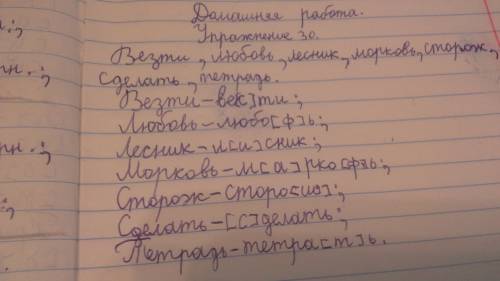 Домашняя работа.
Упражнение 30.
Везти, любовь, лесник, морковь, сторож,
сделать, тетрадь.
Везти-ве[с]ти;
Любовь-любо[ф]ь;
Лесник-л[и]сник;
Морковь-м[а]рко[ф]ь;
Сторож-сторо[ш];
Сделать-[с]делать;
Тетрадь-тетра[т]ь.